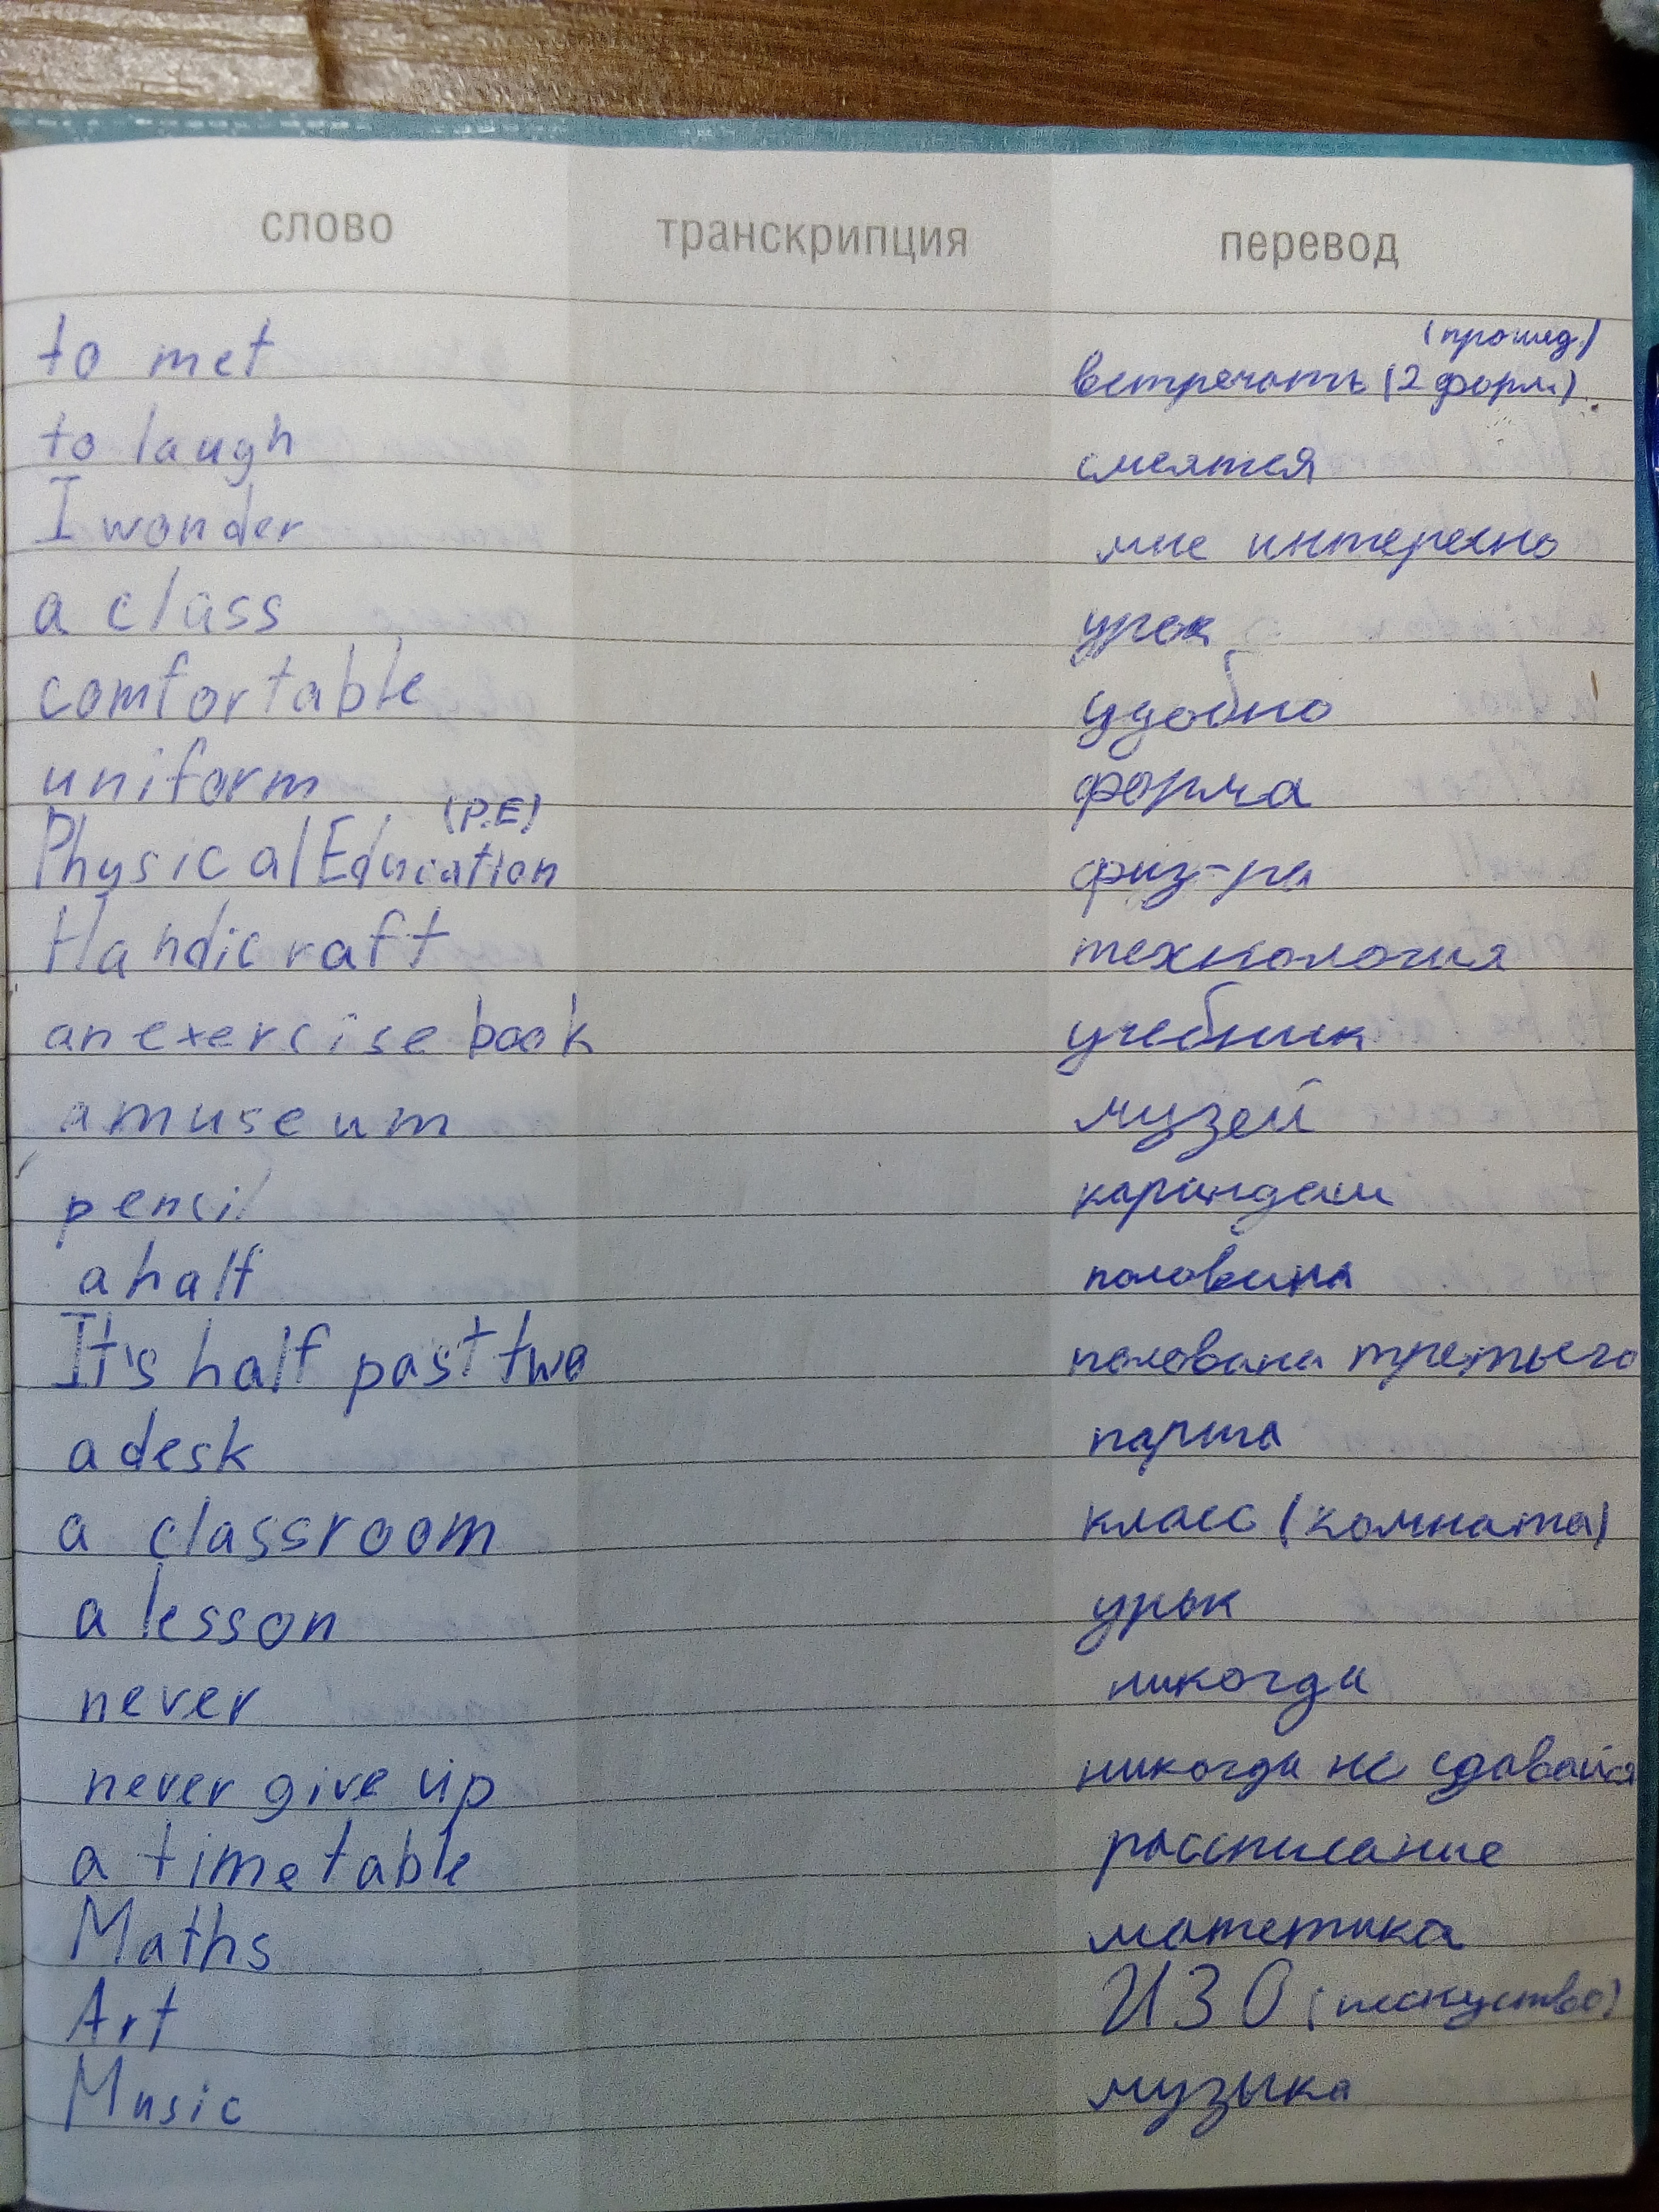 слово транскрипция перевод
to met встречать (2 форм) (прошед.)
to laugh смеятся
I wonder мне интересно
a class урок
comfortable удобно
uniform форма
Physical Education (P.E) физ-ра
Handicraft технология
an exercise book учебник
a museum музей
pencil карандаш
a half половина
It's half past two половина третьего
a desk парта
a classroom класс (комната)
a lesson урок
never никогда
never give up никогда не сдавайся
a timetable рассписание
Maths матетика
Art ИЗО (искуство)
Music музыка